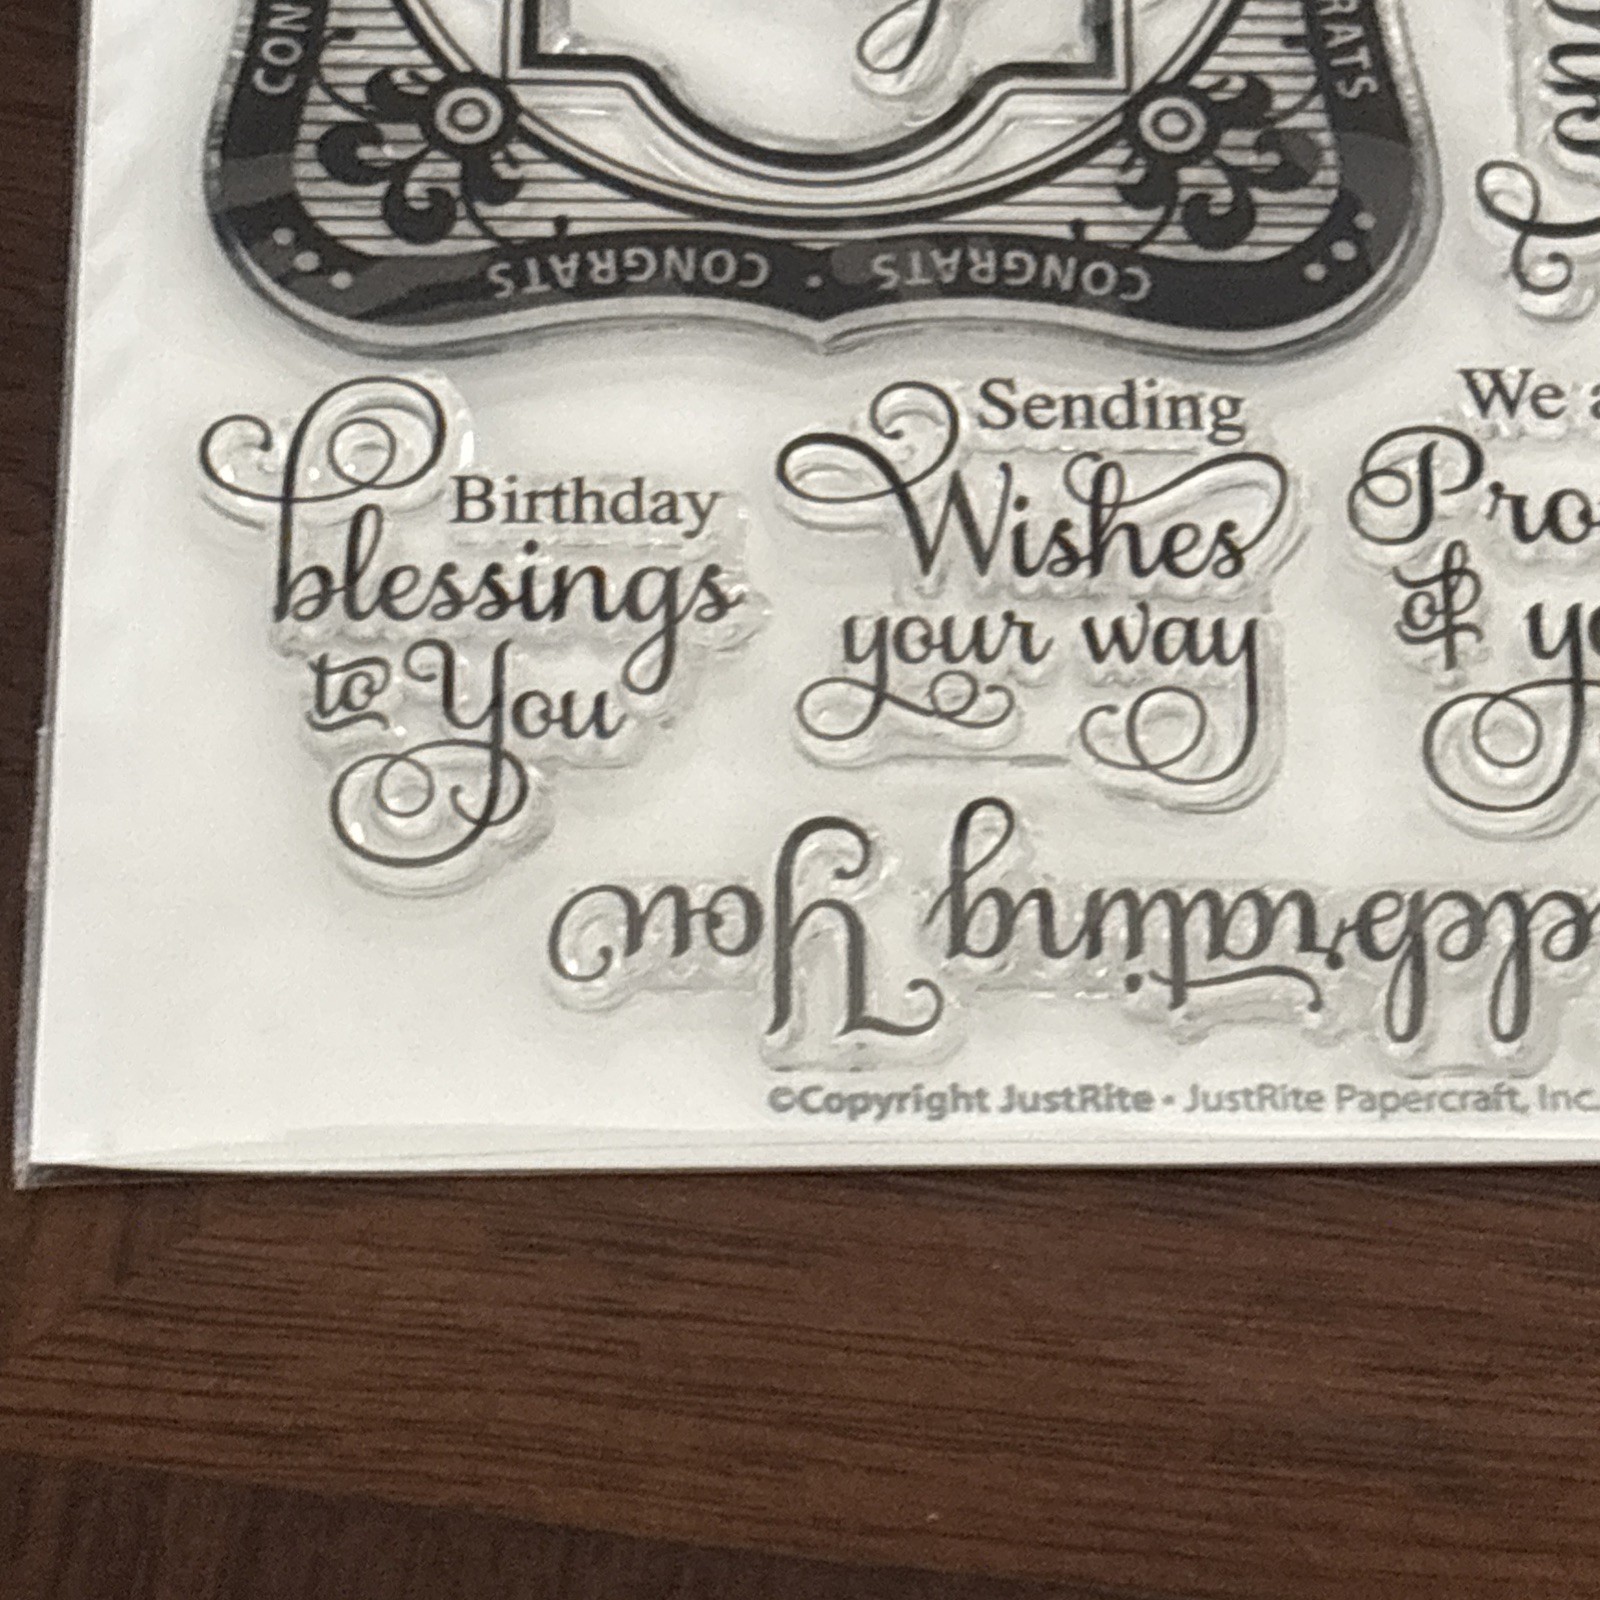 CONGRATS • CONGRATS
Birthday
blessings
to You
Sending
Wishes
your way
We
of
You
©Copyright JustRite • JustRite Papercraft, Inc.